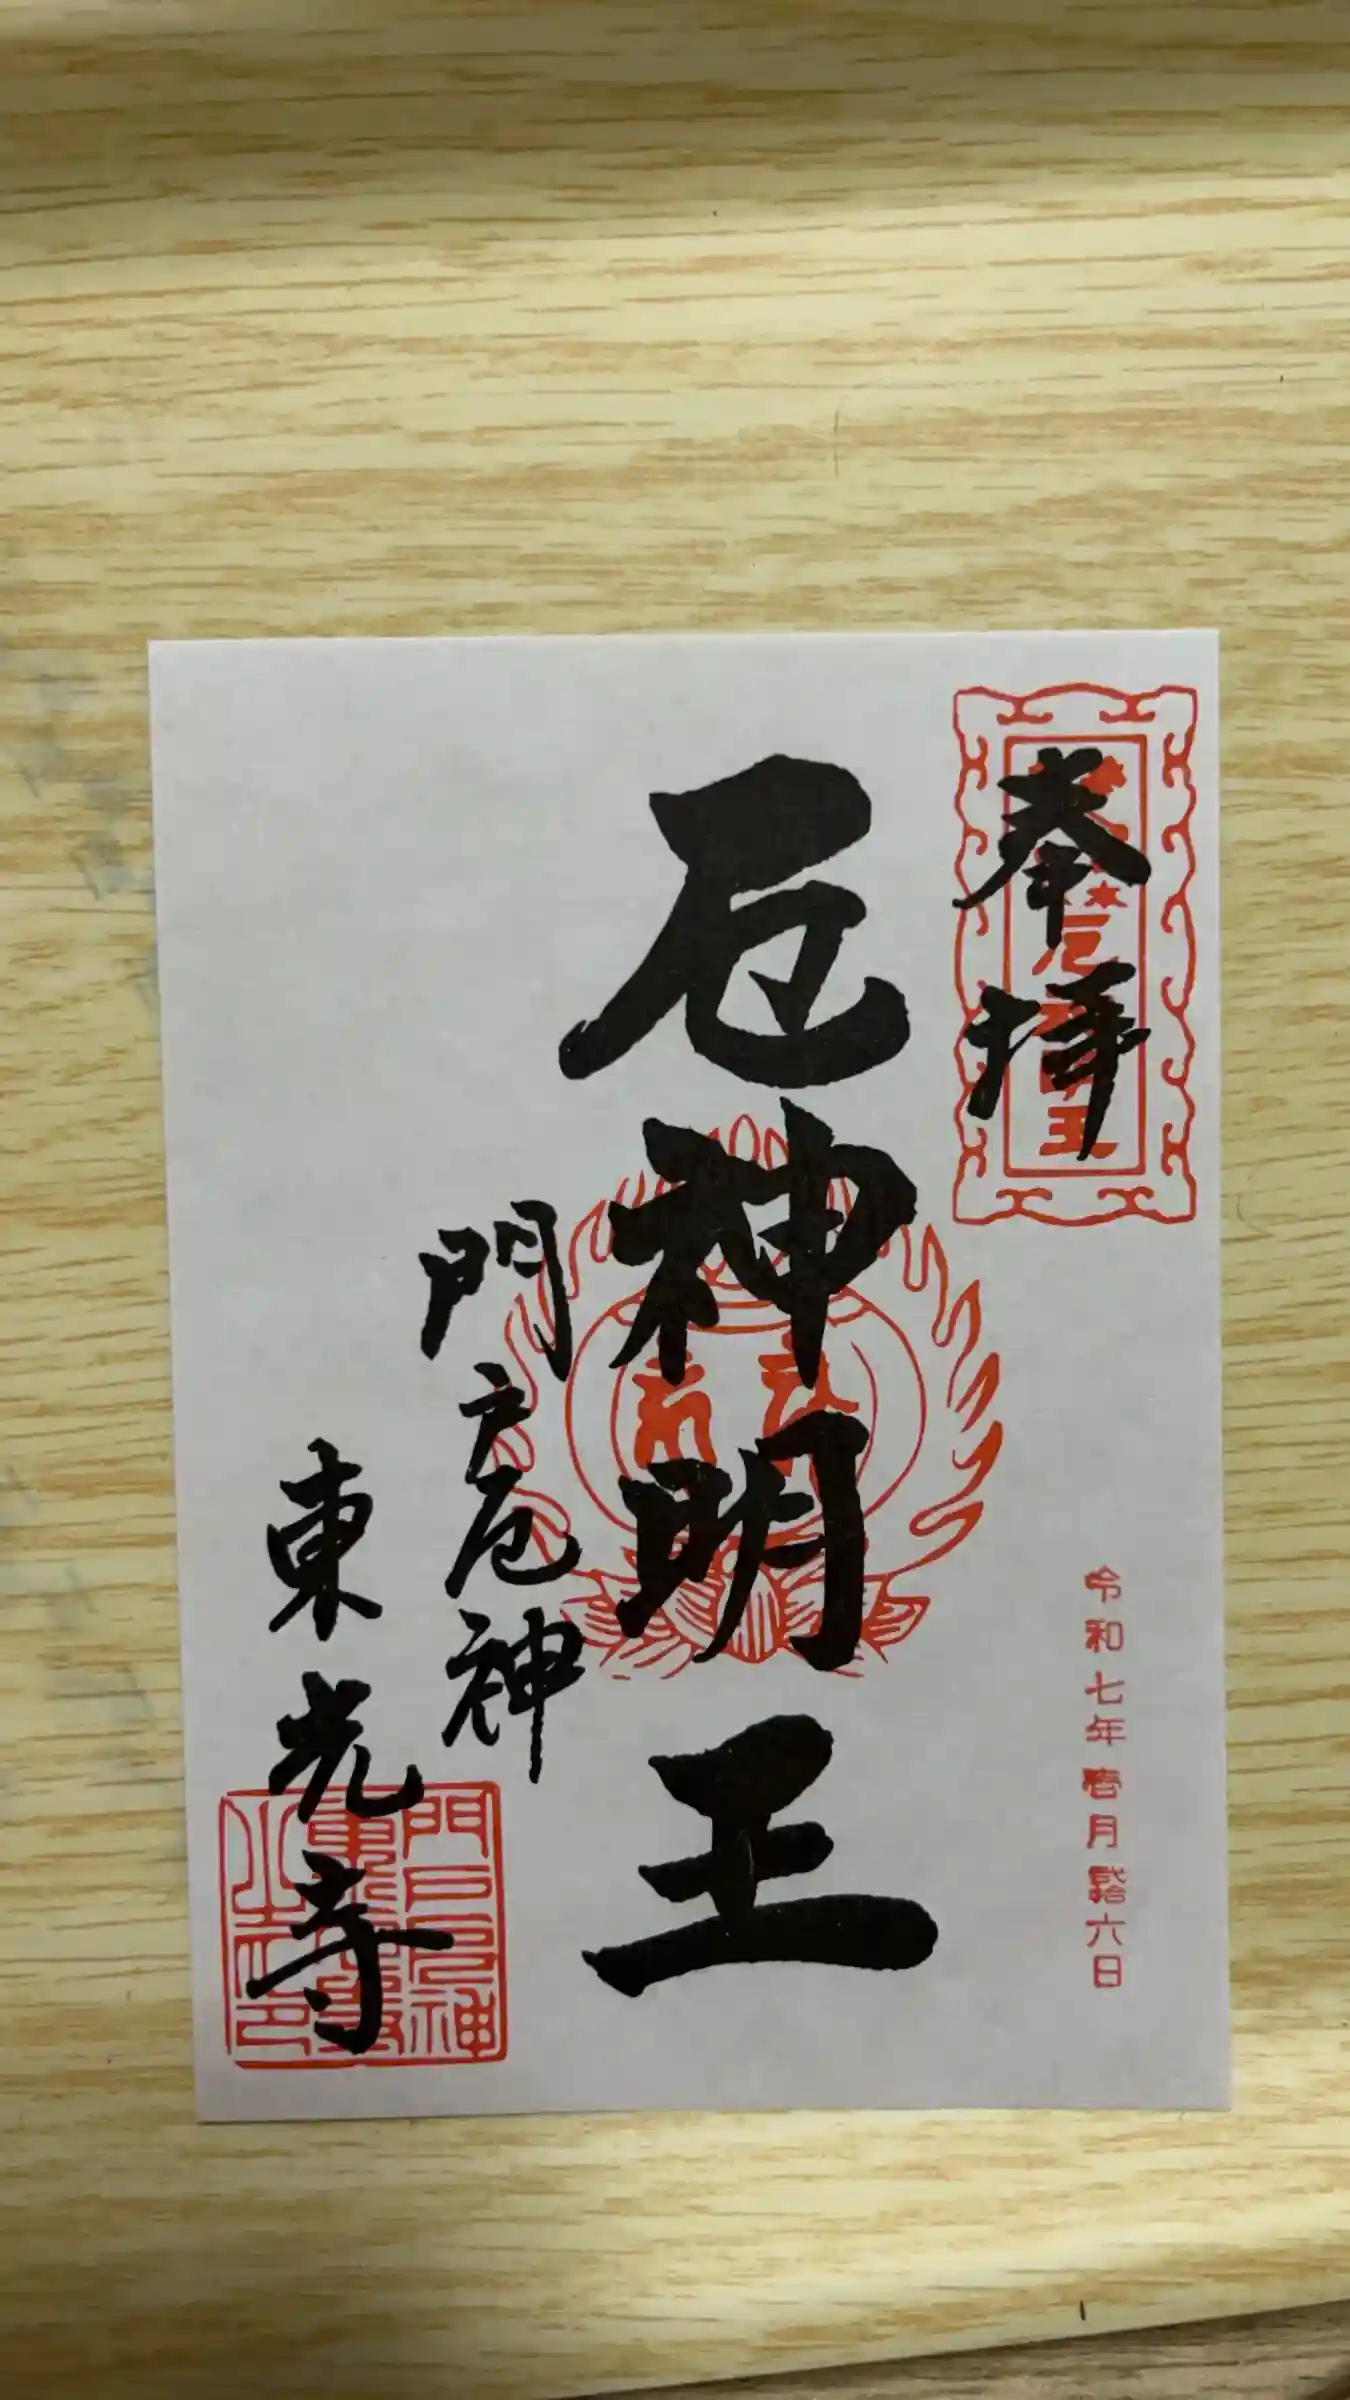 奉拝
令和七年
月
六日
厄神明王
門戸厄神
東光寺
門戸厄神
東光寺
之印